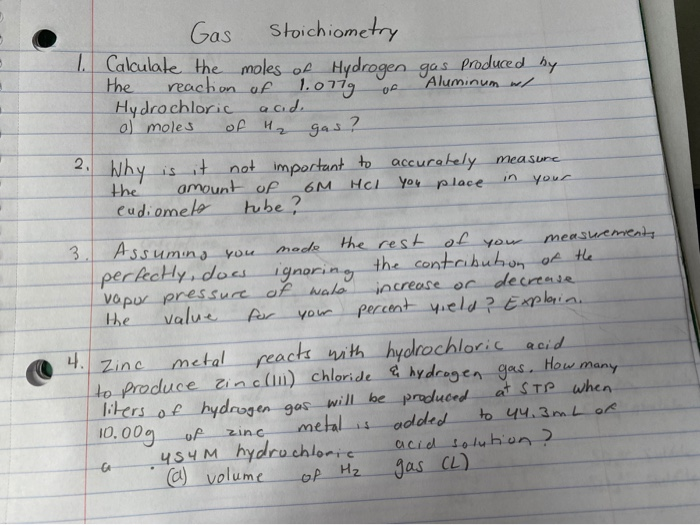 Gas Stoichiometry
1. Calculate the moles of Hydrogen gas produced by
the reaction of 1.077g of Aluminum w/
Hydrochloric acid.
a) moles of H₂ gas?
2. Why is it not important to accurately measure
the amount of 6M HCl you place in your
eudiometer tube?
3. Assuming you made the rest of your measurements
perfectly, does ignoring the contribution of the
vapor pressure of water increase or decrease
the value for your percent yield? Explain.
4. Zinc metal reacts with hydrochloric acid
to produce zinc(III) chloride & hydrogen gas. How many
liters of hydrogen gas will be produced at STP when
10.00g of zinc metal is added to 44.3mL of
a .454M hydrochloric acid solution?
(a) volume of H₂ gas (L)